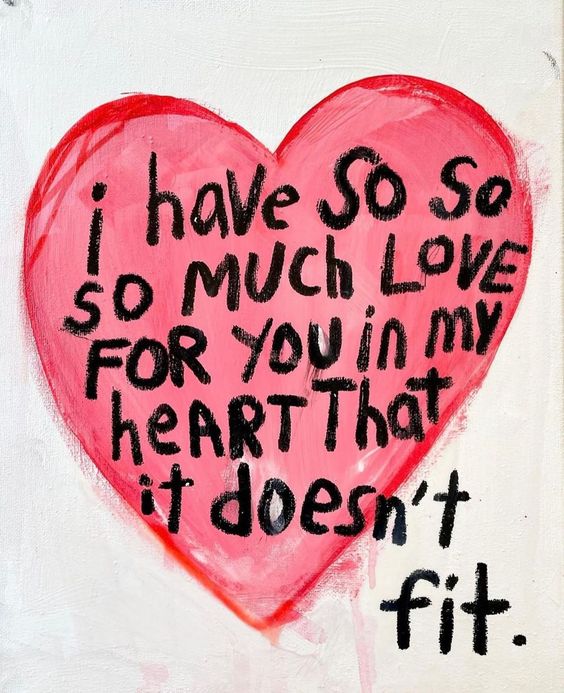 i have So So
so MUch LOVE
FOR YOU in my
heARTThat
it doesn't
fit.